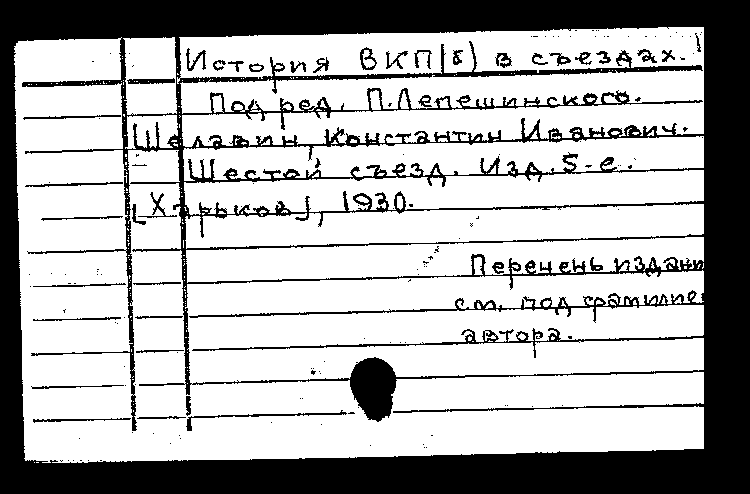 История ВКП(б) в съездах.
Под ред. П.Лепешинского.
Шелавин, Константин Иванович.
Шестой съезд. Изд. 5-е.
[Харьков], 1930.
Перечень издани
см. под фамилие
автора.